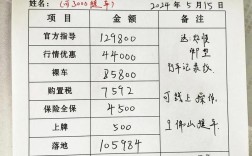 姓名: 3000提车) 2024年5月15日
项目 金额 备注
官方指导 129800 送
行情优惠 44000
裸车 85800 行车记录仪
购置税 7592 可线上操作
保险全保 4500
上牌 500 佛山提车
落地 105984